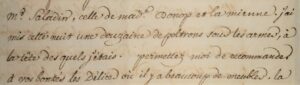 mr. Saladin, celle de made. Donop et la mienne. j'ai
mis cette nuit une douzaine de poltrons sous les armes, à
la tête des quels j'étais. permettez moi de recommander
à vos bontés les Délices où il y a beaucoup de meubles. la